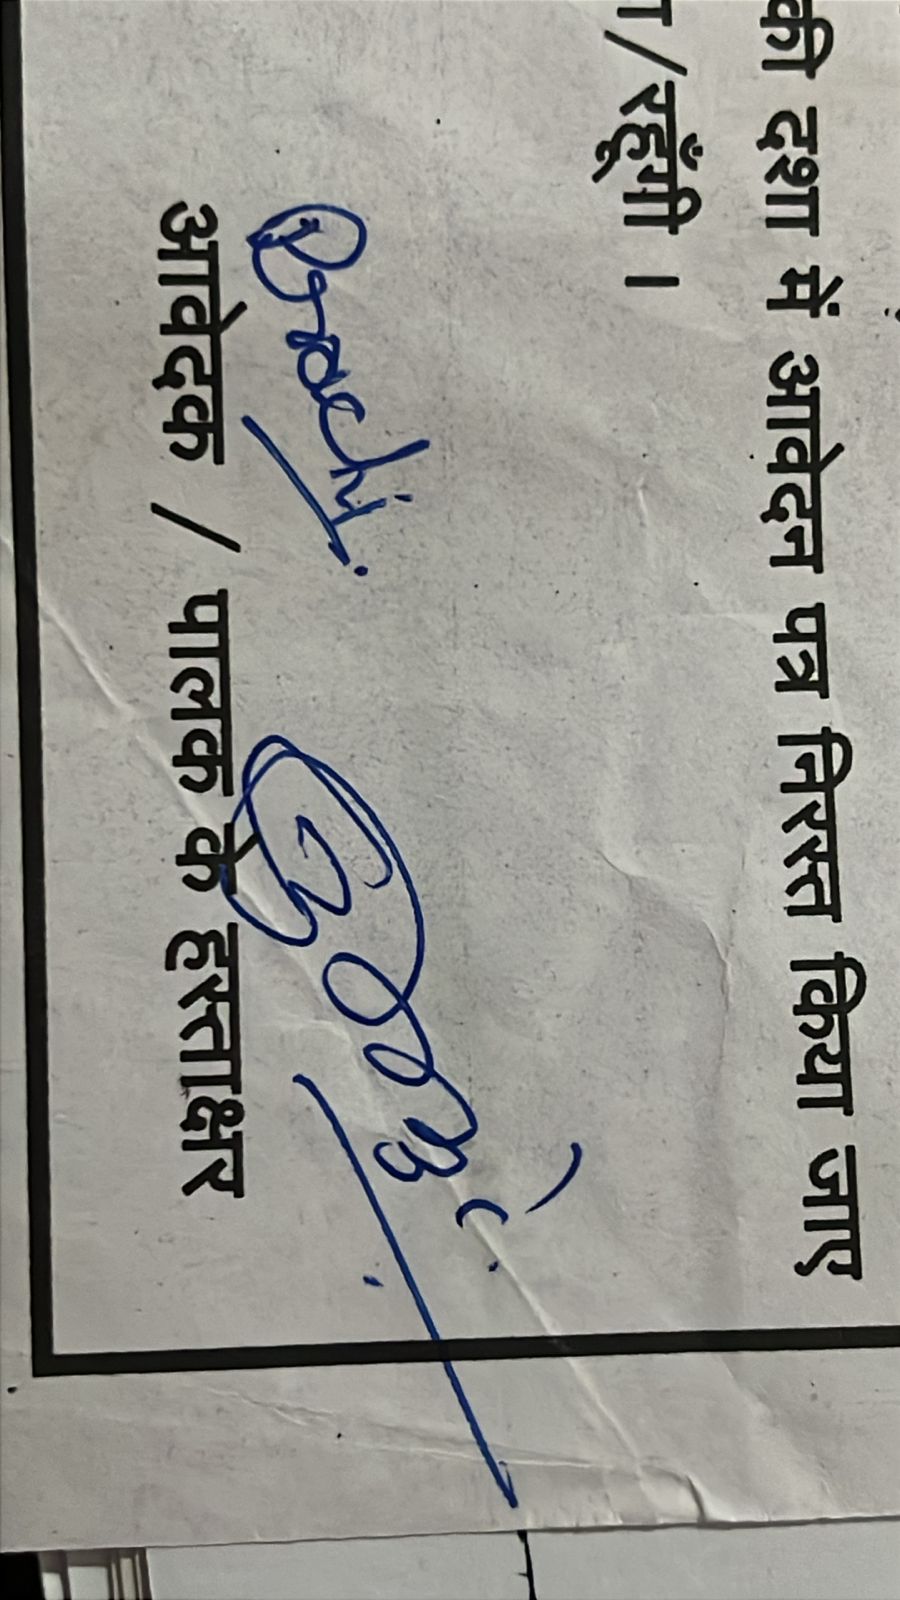 की दशा में आवेदन पत्र निरस्त किया जाए
/रहूँगी ।
Prachi
आवेदक / पालक के हस्ताक्षर